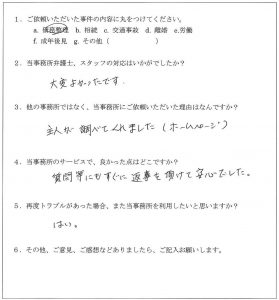 1．ご依頼いただいた事件の内容に丸をつけてください。
a. 債務整理 b. 相続 c. 交通事故 d. 離婚 e.労働
f. 成年後見 g. その他（　　　　　　）
2．当事務所弁護士、スタッフの対応はいかがでしたか？
大変よかったです.
3．他の事務所ではなく、当事務所にご依頼いただいた理由はなんですか？
主人が調べてくれました（ホームページ）
4．当事務所のサービスで、良かった点はどこですか？
質問等にもすぐに返事を頂けて安心でした。
5．再度トラブルがあった場合、また当事務所を利用したいと思いますか？
はい。
6．その他、ご意見、ご感想などありましたら、ご記入お願いします。